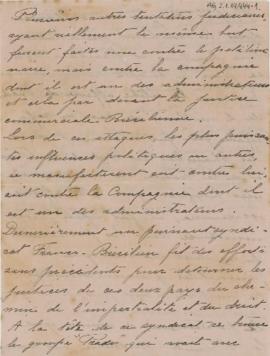 Plusieurs autres tentatives judiciaires,
ayant réellement le même but
furent faites non contre le pétition-
naire, mais contre la compagnie
dont il est un des administrateurs
et cela par devant la justice
commerciale Brésilienne.
Lors de ces attaques, les plus puissan-
tes influences politiques ou autres,
se manifestèrent soit contre lui,
soit contre la Compagnie dont il
est un des administrateurs.
Dernièrement un puissant syndi-
cat Franco-Brésilien fit des efforts
sans précédents pour détourner les
justices de ces deux pays du che-
min de l'impartialité et du droit.
A la tête de ce syndicat se trouve
le groupe qui avait avec